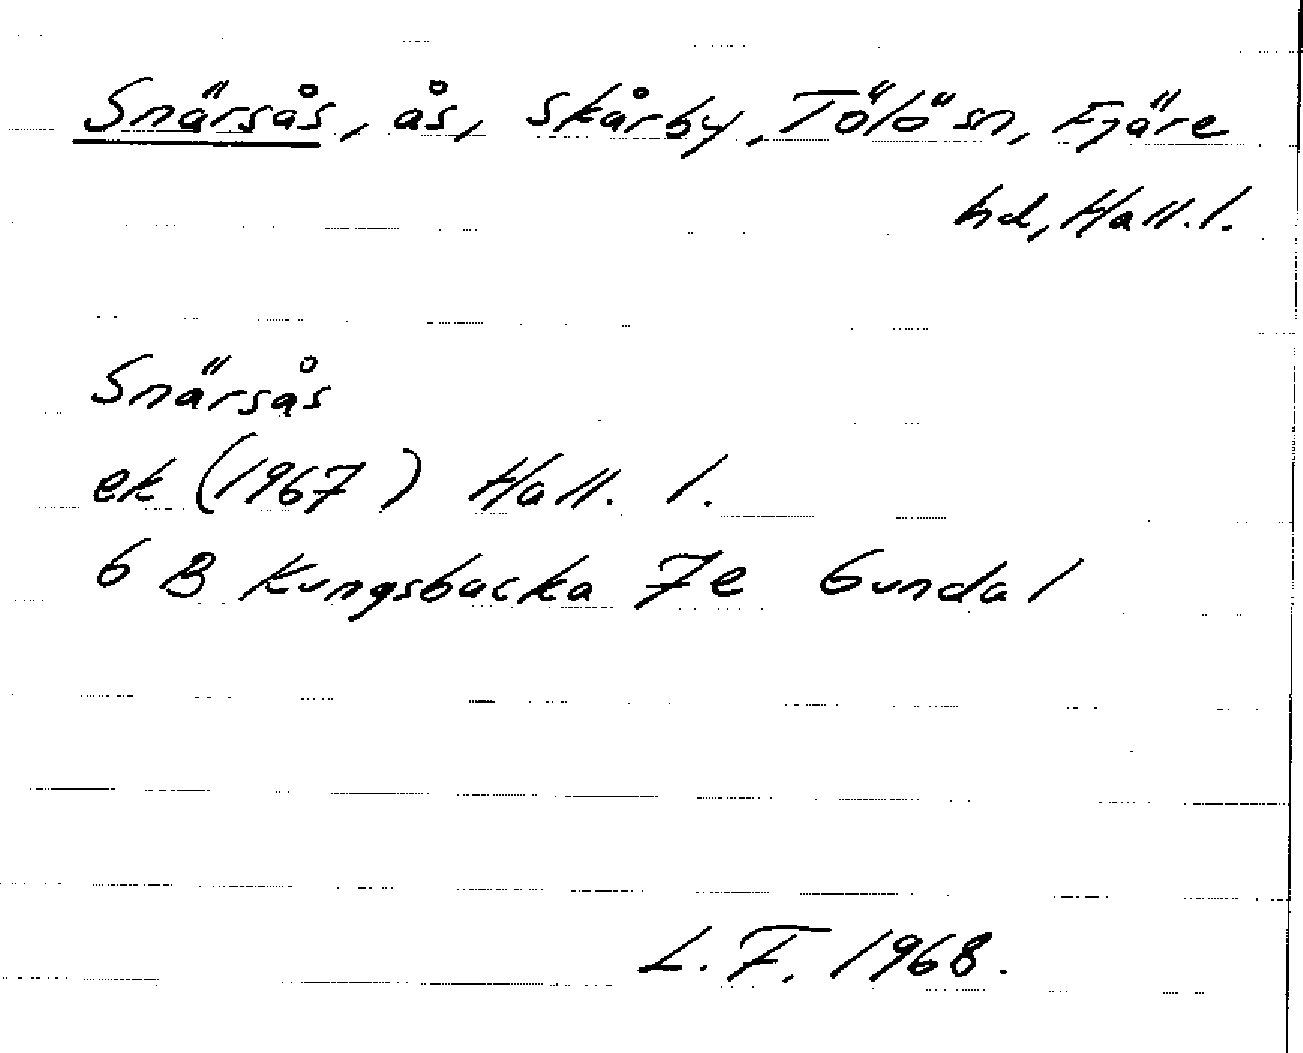 Snärsås, ås, Skårby, Tölö sn, Fjäre
hd, Hall. l.
Snärsås
ek (1967) Hall. l.
6 B Kungsbacka 7e Gundal
L. F. 1968.